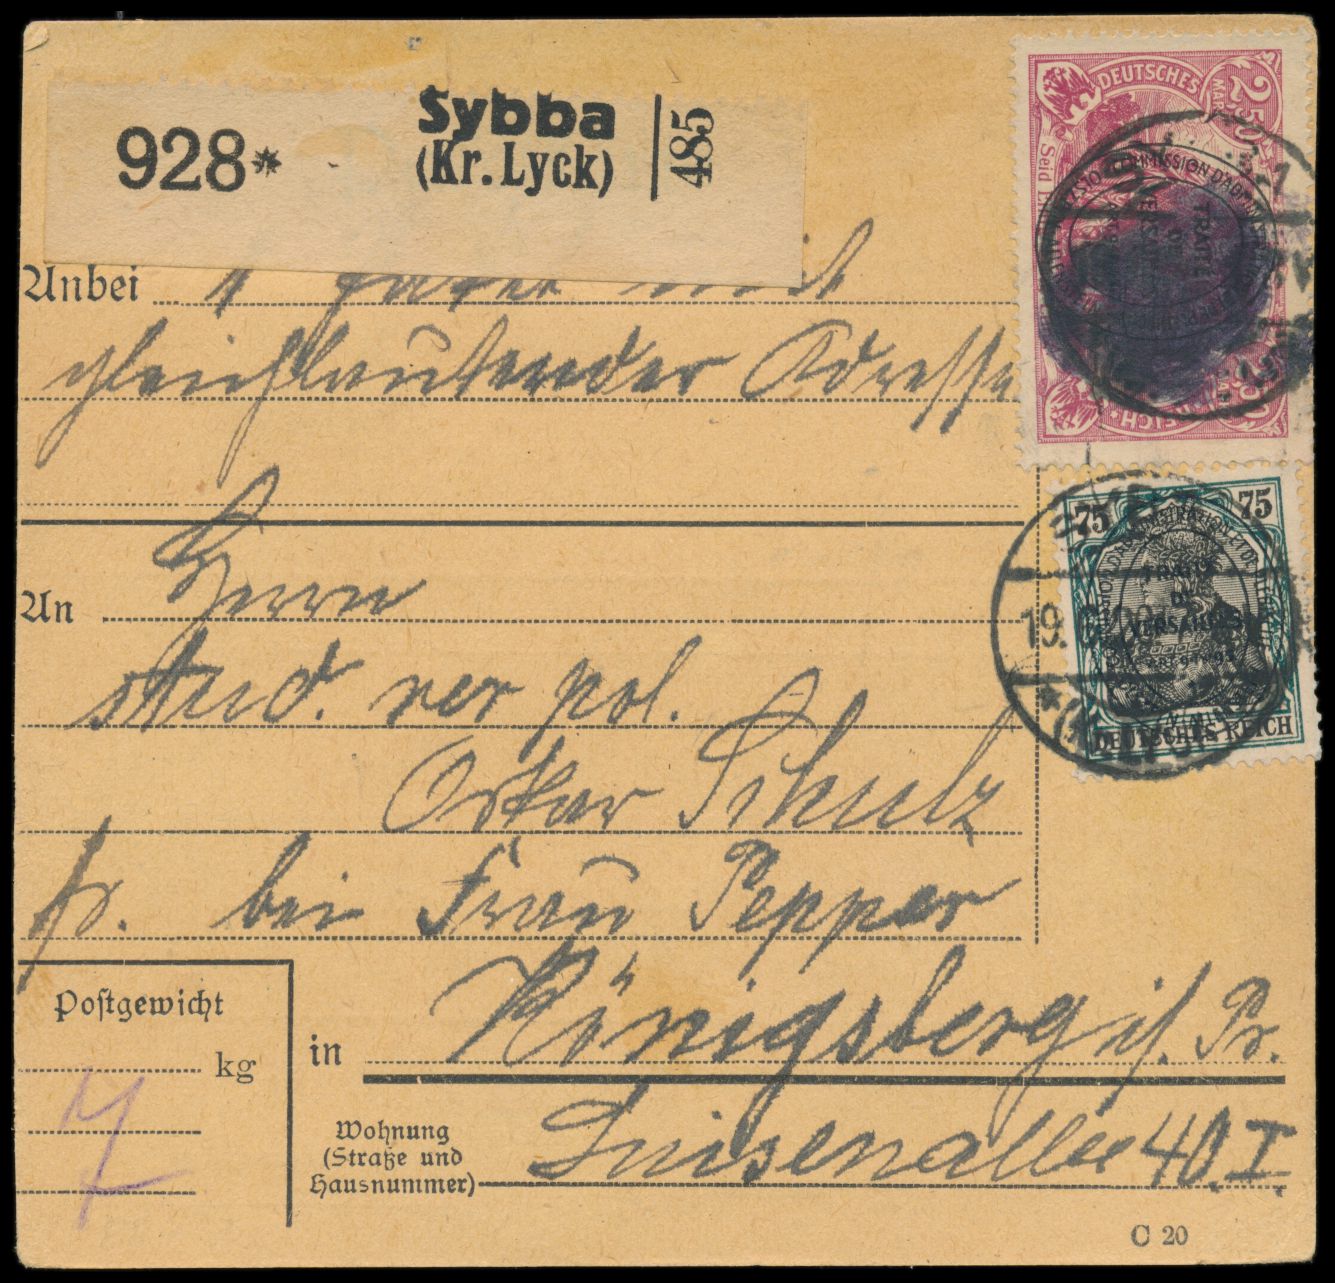 928* Sybba
(Kr. Lyck)
485
Anbei 1 Paket mit
gleichlautender Adresse
An Herrn
stud. rer pol.
Oskar Schulz
fr. bei Frau Pepper
in Königsberg i/. Pr.
Luisenallee 40. I.
Wohnung
(Straße und
Hausnummer)
Postgewicht
kg
7
C 20
2 50
MARK
DEUTSCHES
REICH
COMMISSION D'ADMIN
TRAITÉ
75 75
TRAITÉ
DE
VERSAILLES
DEUTSCHES REICH
19.